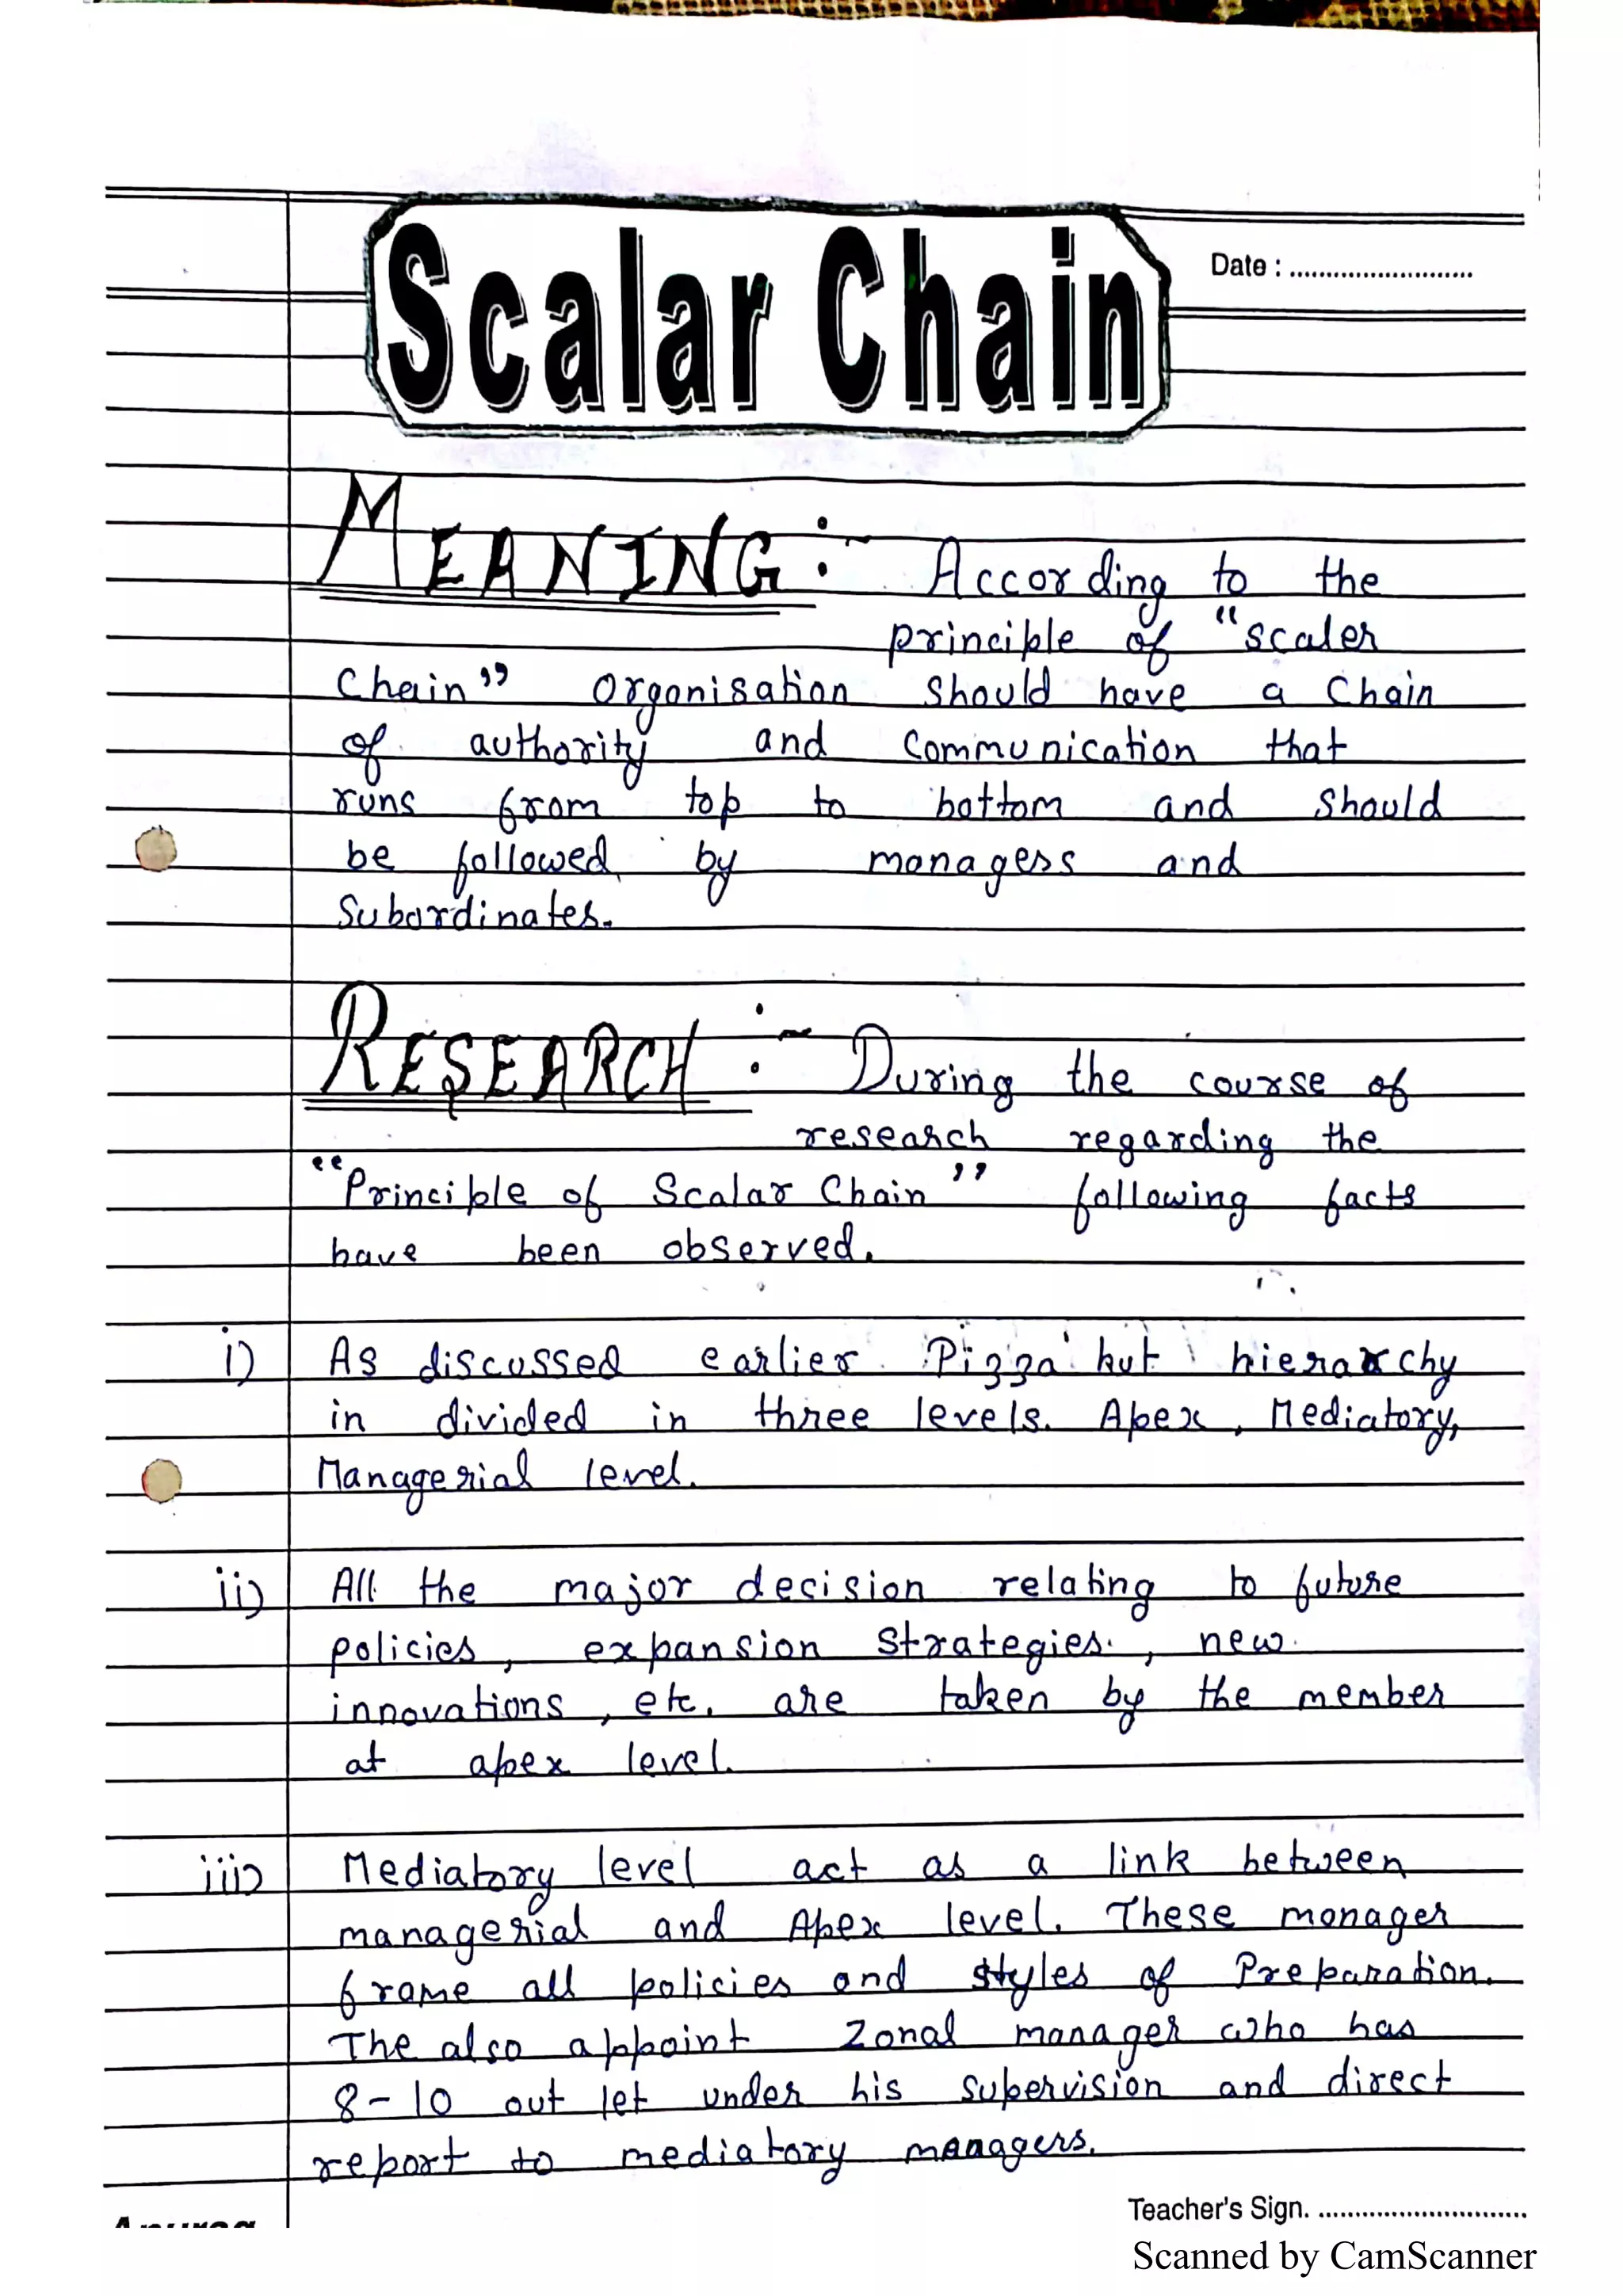 Scalar Chain
Date : ..........................
MEANING :- According to the
principle of "scaler
Chain" Organisation should have a Chain
of authority and Communication that
runs from top to bottom and should
be followed by managess and
Subordinates.
RESEARCH :- During the course of
research regarding the
"Principle of Scalar Chain" following facts
have been observed.
i) As discussed earlier Pizza hut hierarchy
in divided in three levels. Apex, Mediatory,
Managerial level.
ii) All the major decision relating to future
policies, expansion strategies, new
innovations, etc. are taken by the member
at apex level.
iii) Mediatory level act as a link between
managerial and Apex level. These manager
frame all policies and styles of Preparation.
The also appoint Zonal manager who has
8-10 out let under his supervision and direct
report to mediatory managers.
Teacher's Sign. ..............................
Scanned by CamScanner